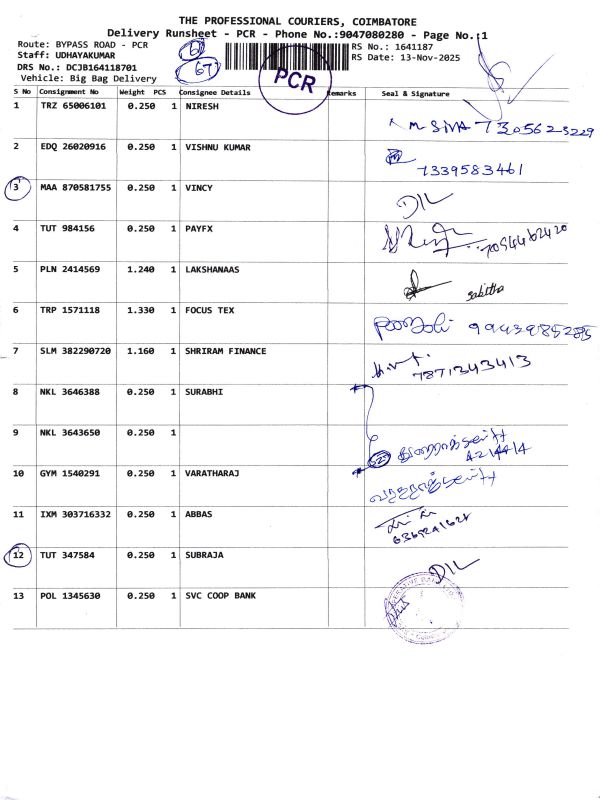 THE PROFESSIONAL COURIERS, COIMBATORE
Delivery Runsheet - PCR - Phone No.:9047080280 - Page No.:1
Route: BYPASS ROAD - PCR
RS No.: 1641187
Staff: UDHAYAKUMAR
RS Date: 13-Nov-2025
DRS No.: DCJB164118701
67
PCR
Vehicle: Big Bag Delivery
S No Consignment No Weight PCS Consignee Details Remarks Seal & Signature
1 TRZ 65006101 0.250 1 NIRESH
M SIVA 7305623229
2 EDQ 26020916 0.250 1 VISHNU KUMAR
7339583461
3 MAA 870581755 0.250 1 VINCY
D/L
4 TUT 984156 0.250 1 PAYFX
7094462420
5 PLN 2414569 1.240 1 LAKSHANAAS
Sabitha
6 TRP 1571118 1.330 1 FOCUS TEX
9943985285
7 SLM 382290720 1.160 1 SHRIRAM FINANCE
7871343413
8 NKL 3646388 0.250 1 SURABHI
9 NKL 3643650 0.250 1
10 GYM 1540291 0.250 1 VARATHARAJ
11 IXM 303716332 0.250 1 ABBAS
12 TUT 347584 0.250 1 SUBRAJA
D/L
13 POL 1345630 0.250 1 SVC COOP BANK